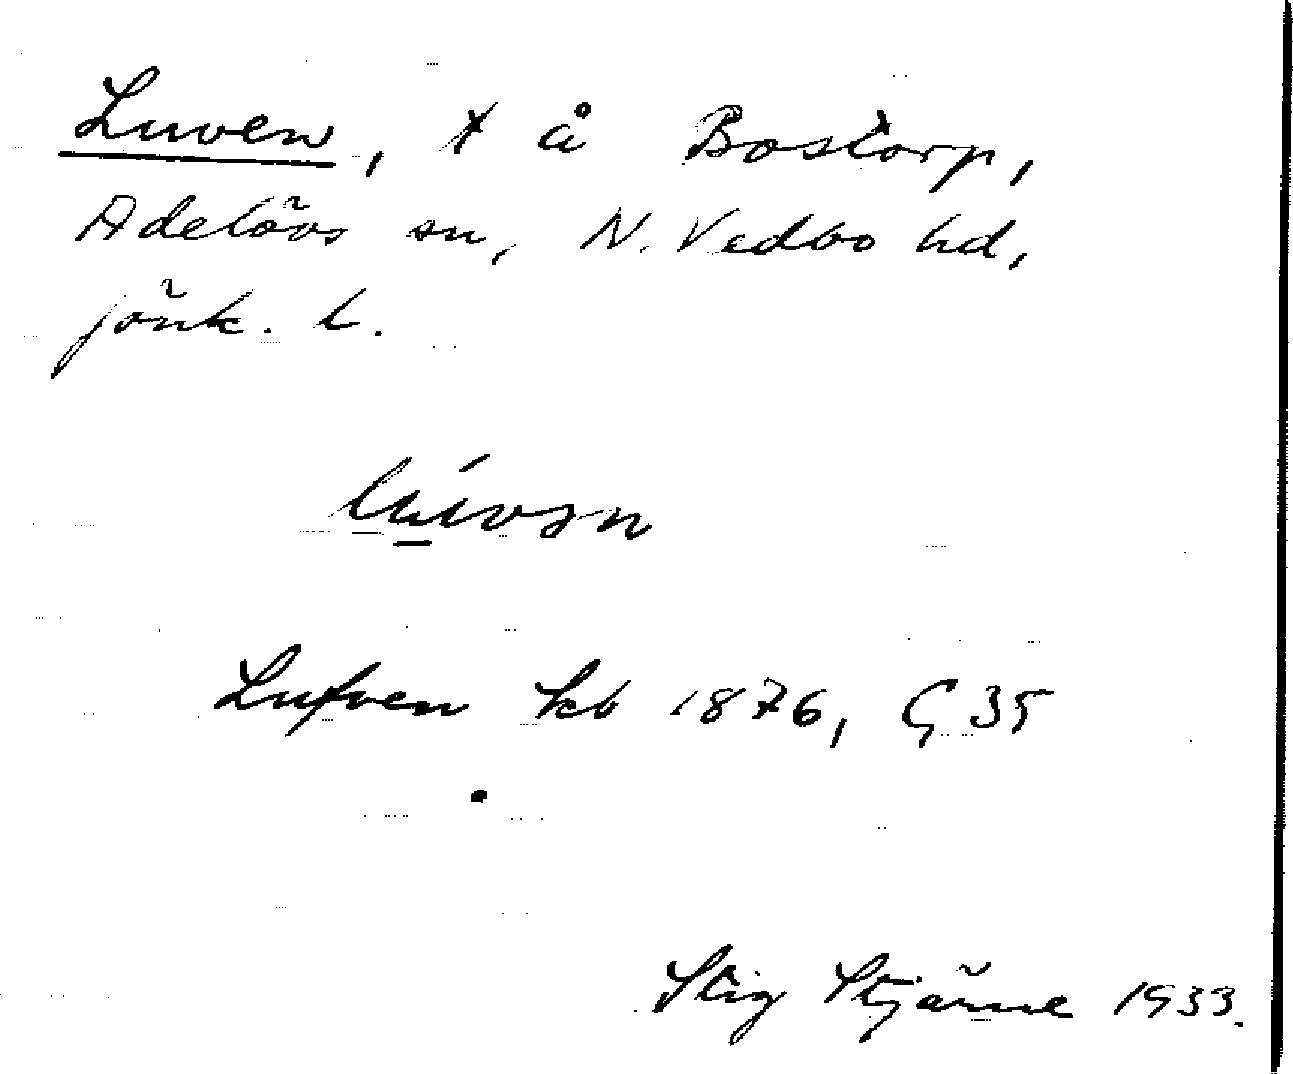 Luven, x å Bostorp,
Adelövs sn, N. Vedbo hd,
jönk. l.
Lufven kb 1876, G 35
Stig Stjärne 1933.